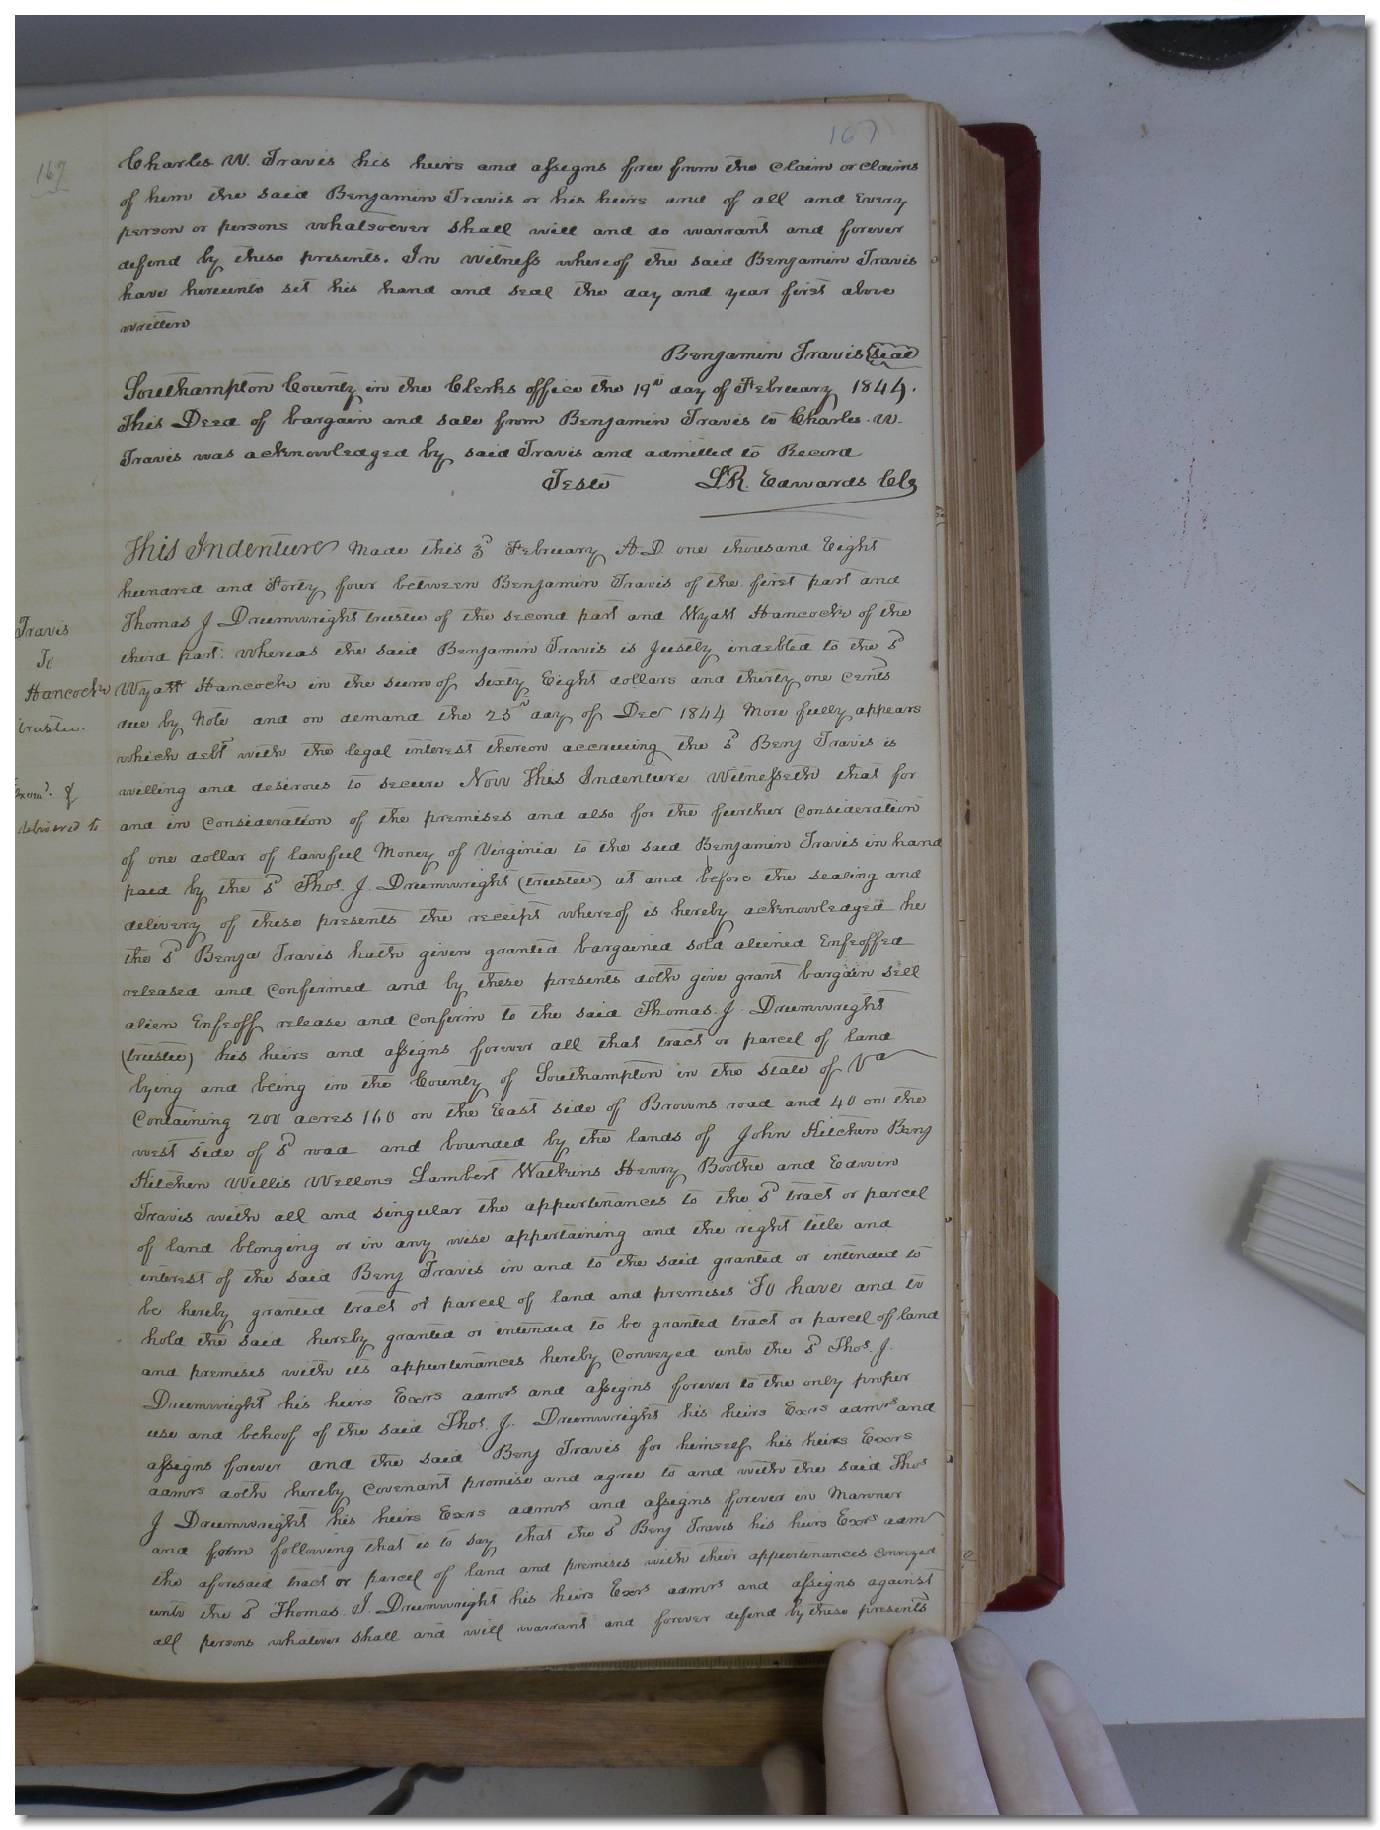 167
167
Charles W. Travis his heirs and assigns free from the claim or claims
of him the said Benjamin Travis or his heirs and of all and Every
person or persons whatsoever shall will and do warrant and forever
defend by these presents. In witness whereof the said Benjamin Travis
have hereunto set his hand and seal the day and year first above
written
Benjamin Travis Seal
Southampton County in the Clerks office the 19th day of February 1844.
This Deed of bargain and sale from Benjamin Travis to Charles. W.
Travis was acknowledged by said Travis and admitted to Record
Teste L R. Edwards Clk
This Indenture Made this 3d February A.D. one thousand Eight
hundred and Forty four between Benjamin Travis of the first part and
Thomas J Drumwright trustee of the second part and Wyatt Hancocke of the
third part. whereas the said Benjamin Travis is Justly indebted to the sd
Wyatt Hancocke in the sum of sixty Eight dollars and thirty one cents
due by Note and on demand the 25th day of Decr 1844 More fully appears
which debt with the legal interest thereon accruing the sd Benj Travis is
willing and desirous to secure Now This Indenture Witnesseth that for
and in consideration of the premises and also for the further consideration
of one dollar of lawful Money of Virginia to the said Benjamin Travis in hand
paid by the sd Thos. J. Drumwright (trustee) at and before the sealing and
delivery of these presents the receipt whereof is hereby acknowledged he
the sd Benja Travis hath given granted bargained sold aliened Enfeoffed
released and confirmed and by these presents doth give grant bargain sell
alien Enfeoff release and confirm to the said Thomas. J. Drumwright
(trustee) his heirs and assigns forever all that tract or parcel of land
lying and being in the County of Southampton in the state of Va
Containing 200 acres 160 on the East side of Browns road and 40 on the
west side of sd road and bounded by the lands of John Kitchen Benj
Kitchen Willis Wellons Lambert Watkins Henry Boothe and Edwin
Travis with all and singular the appurtenances to the sd tract or parcel
of land blonging or in any wise appertaining and the right title and
interest of the said Benj Travis in and to the said granted or intended to
be hereby granted tract or parcel of land and premises To have and to
hold the said hereby granted or intended to be granted tract or parcel of land
and premises with its appurtenances hereby Conveyed unto the sd Thos. J.
Drumwright his heirs Exors admrs and assigns forever to the only proper
use and behoof of the said Thos. J. Drumwright his heirs Exors admrs and
assigns forever and the said Benj Travis for himself his heirs Exors
admrs doth hereby Covenant promise and agree to and with the said Thos
J Drumwright his heirs Exors admrs and assigns forever in Manner
and form following that is to say that the sd Benj Travis his heirs Exors adm
the aforesaid tract or parcel of land and premises with their appurtenances conveyed
unto the sd Thomas. J. Drumwright his heirs Exors admrs and assigns against
all persons whatever shall and will warrant and forever defend by these presents
Travis
To
Hancocke
trustee.
Examd. &
delivered to